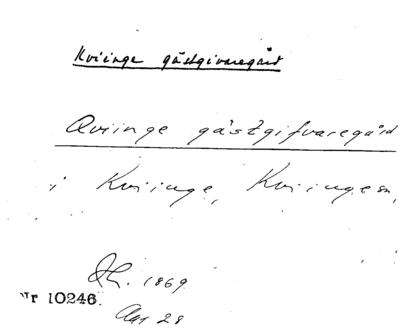 Kviinge gästgivaregård
Qviinge gästgifvaregård
i Kviinge, Kviinge sn,
1869
Nr 10246.
28